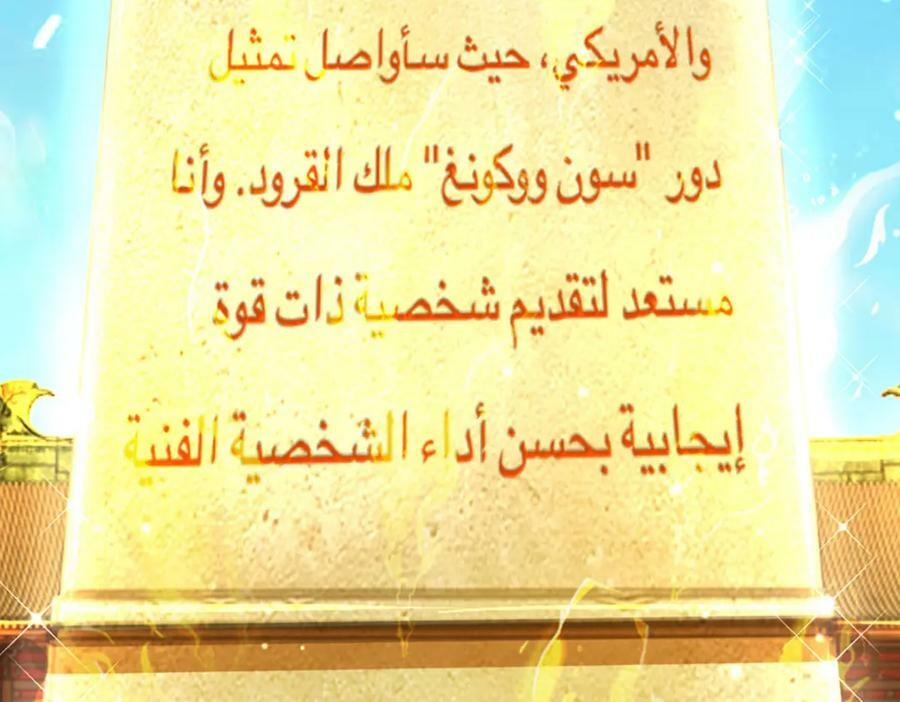 والأمريكي، حيث سأواصل تمثيل
دور "سون ووكونغ" ملك القرود. وأنا
مستعد لتقديم شخصية ذات قوة
إيجابية بحسن أداء الشخصية الفنية